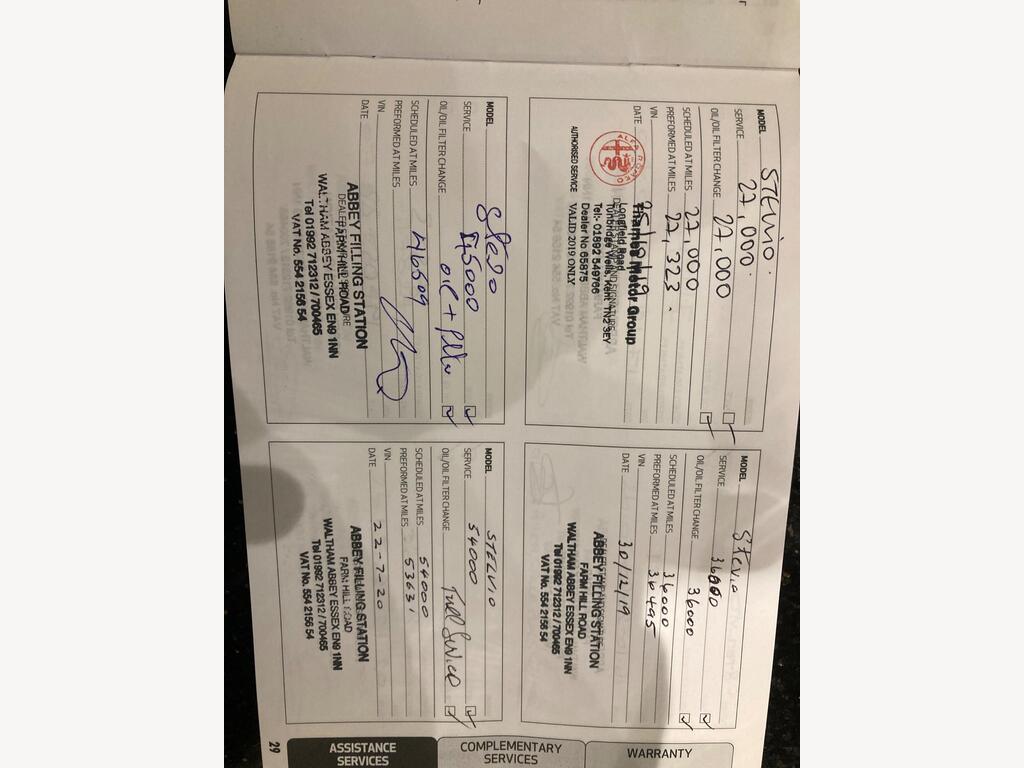 MODEL STELVIO.
SERVICE 27,000.
OIL/OIL FILTER CHANGE 27,000
SCHEDULED AT MILES 27,000
PREFORMED AT MILES 27,323.
VIN
DATE
Thames Motor Group
Longfield Road
Tunbridge Wells, Kent TN2 3EY
Tel:- 01892 549766
Dealer No 65875
VALID 2019 ONLY
ALFA ROMEO
AUTHORISED SERVICE
MODEL Stevio
SERVICE 36000
OIL/OIL FILTER CHANGE 36000
SCHEDULED AT MILES 36000
PREFORMED AT MILES 36495
VIN
DATE 30/12/19
ABBEY FILLING STATION
FARM HILL ROAD
WALTHAM ABBEY ESSEX EN9 1NN
Tel 01992 712312 / 700465
VAT No. 554 2156 54
MODEL
SERVICE 45000
OIL/OIL FILTER CHANGE OIL +
SCHEDULED AT MILES
PREFORMED AT MILES 46509
VIN
DATE
ABBEY FILLING STATION
FARM HILL ROAD
WALTHAM ABBEY ESSEX EN9 1NN
Tel 01992 712312 / 700465
VAT No. 554 2156 54
MODEL STELVIO
SERVICE 54000
OIL/OIL FILTER CHANGE Full Service
SCHEDULED AT MILES 54000
PREFORMED AT MILES 53631
VIN
DATE 22-7-20
ABBEY FILLING STATION
FARM HILL ROAD
WALTHAM ABBEY ESSEX EN9 1NN
Tel 01992 712312 / 700465
VAT No. 554 2156 54
WARRANTY
COMPLEMENTARY
SERVICES
ASSISTANCE
SERVICES
29